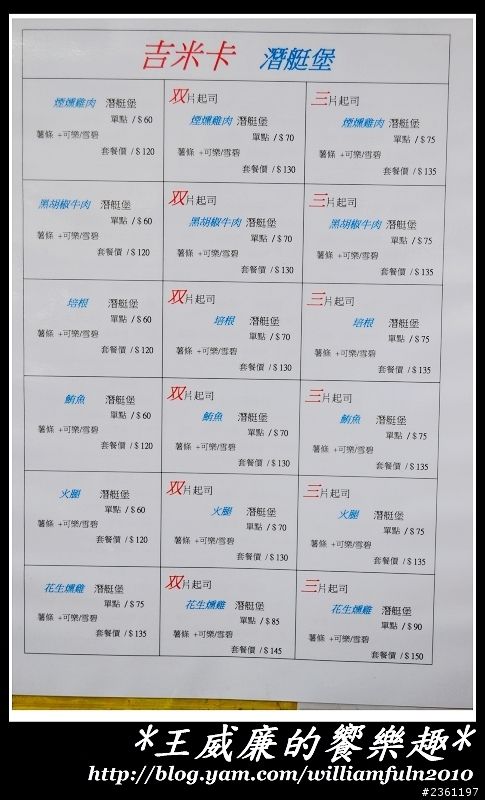 吉米卡 潛艇堡
煙燻雞肉 潛艇堡
單點 / $ 60
薯條 +可樂/雪碧
套餐價 / $ 120
双片起司
煙燻雞肉 潛艇堡
單點 / $ 70
薯條 +可樂/雪碧
套餐價 / $ 130
三片起司
煙燻雞肉 潛艇堡
單點 / $ 75
薯條 +可樂/雪碧
套餐價 / $ 135
黑胡椒牛肉 潛艇堡
單點 / $ 60
薯條 +可樂/雪碧
套餐價 / $ 120
双片起司
黑胡椒牛肉 潛艇堡
單點 / $ 70
薯條 +可樂/雪碧
套餐價 / $ 130
三片起司
黑胡椒牛肉 潛艇堡
單點 / $ 75
薯條 +可樂/雪碧
套餐價 / $ 135
培根 潛艇堡
單點 / $ 60
薯條 +可樂/雪碧
套餐價 / $ 120
双片起司
培根 潛艇堡
單點 / $ 70
薯條 +可樂/雪碧
套餐價 / $ 130
三片起司
培根 潛艇堡
單點 / $ 75
薯條 +可樂/雪碧
套餐價 / $ 135
鮪魚 潛艇堡
單點 / $ 60
薯條 +可樂/雪碧
套餐價 / $ 120
双片起司
鮪魚 潛艇堡
單點 / $ 70
薯條 +可樂/雪碧
套餐價 / $ 130
三片起司
鮪魚 潛艇堡
單點 / $ 75
薯條 +可樂/雪碧
套餐價 / $ 135
火腿 潛艇堡
單點 / $ 60
薯條 +可樂/雪碧
套餐價 / $ 120
双片起司
火腿 潛艇堡
單點 / $ 70
薯條 +可樂/雪碧
套餐價 / $ 130
三片起司
火腿 潛艇堡
單點 / $ 75
薯條 +可樂/雪碧
套餐價 / $ 135
花生燻雞 潛艇堡
單點 / $ 75
薯條 +可樂/雪碧
套餐價 / $ 135
双片起司
花生燻雞 潛艇堡
單點 / $ 85
薯條 +可樂/雪碧
套餐價 / $ 145
三片起司
花生燻雞 潛艇堡
單點 / $ 90
薯條 +可樂/雪碧
套餐價 / $ 150
*王威廉的饗樂趣*
http://blog.yam.com/williamfuln2010
#2361197